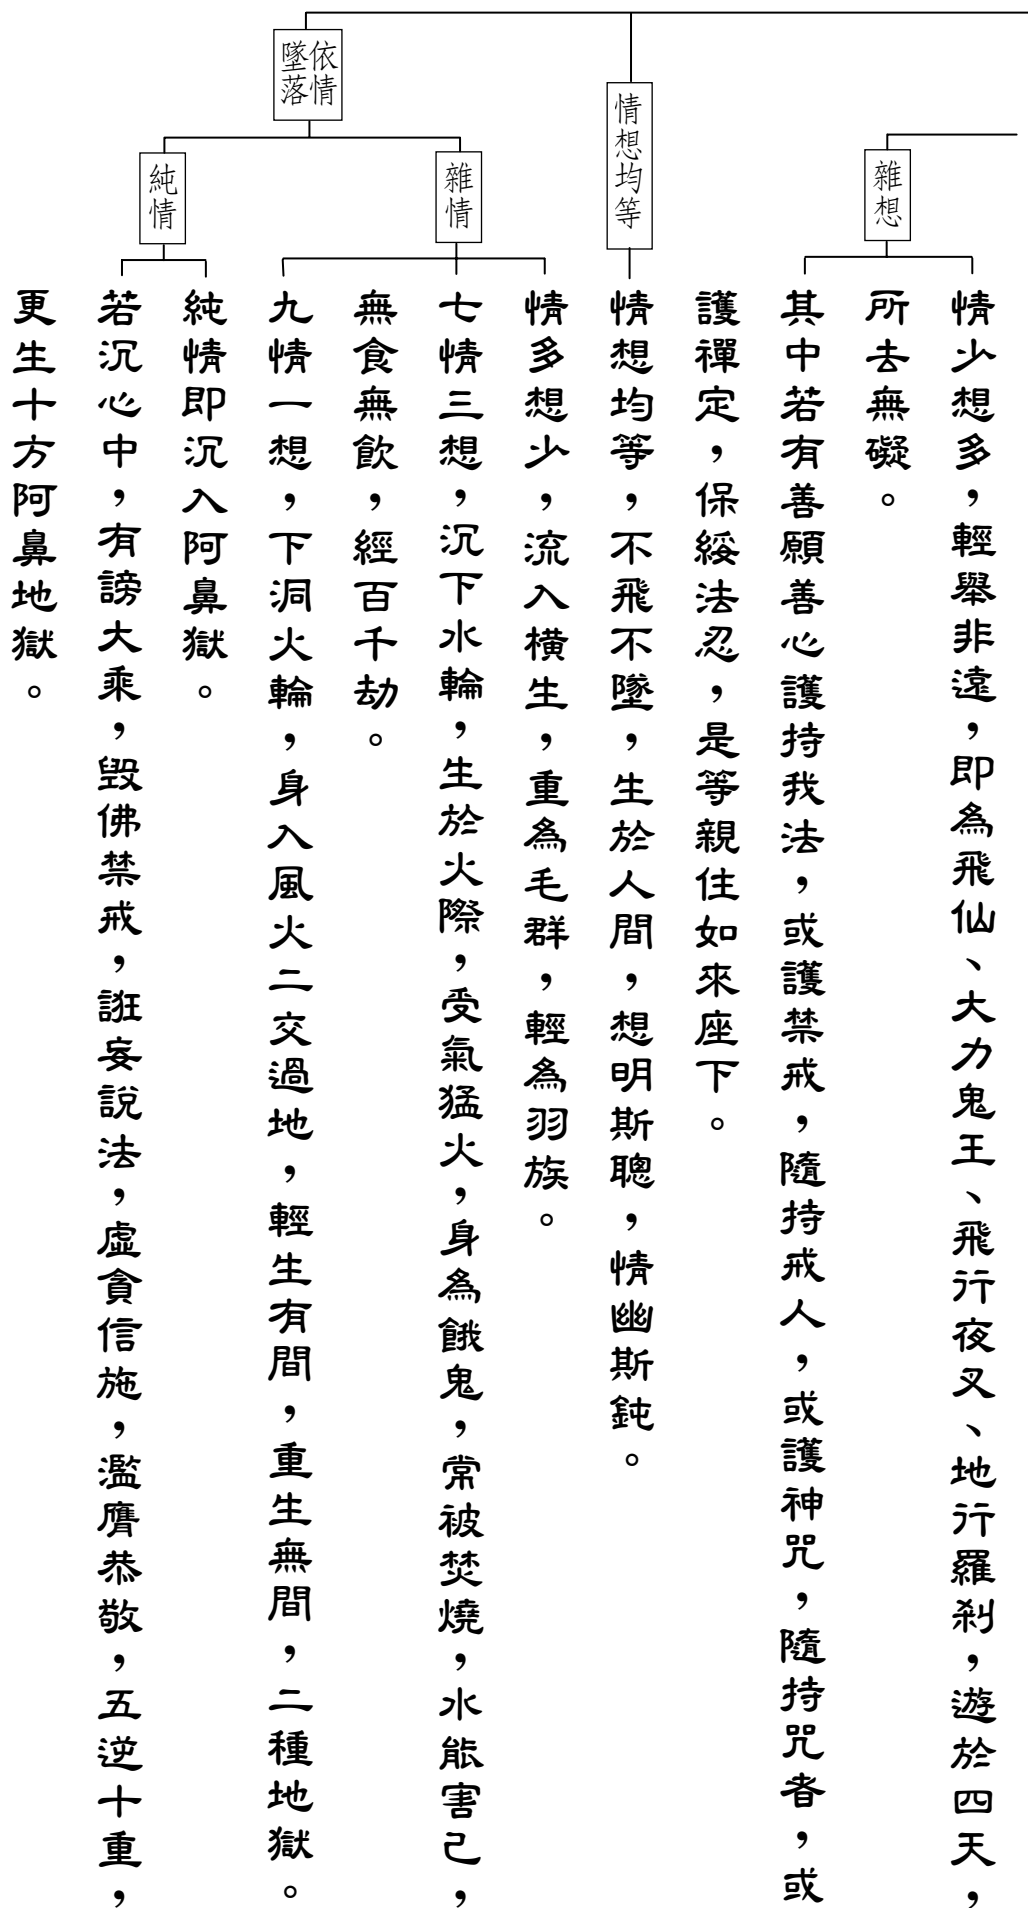 雜想
情少想多，輕舉非遠，即為飛仙、大力鬼王、飛行夜叉、地行羅剎，遊於四天，
所去無礙。
其中若有善願善心護持我法，或護禁戒，隨持戒人，或護神咒，隨持咒者，或
護禪定，保綏法忍，是等親住如來座下。
情想均等
情想均等，不飛不墜，生於人間，想明斯聰，情幽斯鈍。
依情
墜落
雜情
情多想少，流入橫生，重為毛群，輕為羽族。
七情三想，沉下水輪，生於火際，受氣猛火，身為餓鬼，常被焚燒，水能害己，
無食無飲，經百千劫。
九情一想，下洞火輪，身入風火二交過地，輕生有間，重生無間，二種地獄。
純情
純情即沉入阿鼻獄。
若沉心中，有謗大乘，毀佛禁戒，誑妄說法，虛貪信施，濫膺恭敬，五逆十重，
更生十方阿鼻地獄。